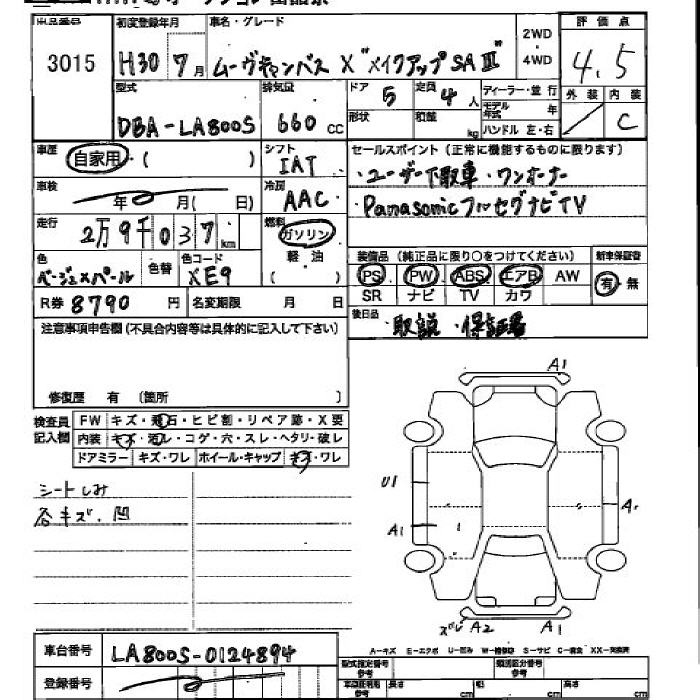 出品番号 初度登録年月 車名・グレード 2WD・4WD 評価点
3015 H30 7月 ムーヴキャンバス X "メイクアップ SA Ⅲ" 4.5
型式 排気量 ドア 5 定員 4人 ディーラー・並行 外装 内装
DBA-LA800S 660 cc 形状 積載 kg モデル年式 年 C
ハンドル 左・右
車歴 自家用・( ) シフト IAT セールスポイント(正常に機能するものに限ります)
車検 年 月( 日) 冷房 AAC ・ユーザー下取車・ワンオーナー
走行 2万9千037km 燃料 ガソリン 軽油 ( ) Panasonicフルセグナビ TV
色 ベージュ×パール 色替 色コード XE9 装備品(純正品に限り○をつけてください) 新車保証書
PS PW ABS エアB AW 有・無
SR ナビ TV カワ
R券 8790 円 名変期限 月 日
後日品 取説・保証書
注意事項申告欄(不具合内容等は具体的に記入して下さい)
修復歴 有 (箇所 )
検査員記入欄 FW キズ・飛石・ヒビ割・リペア跡・X要
内装 キズ・汚レ・コゲ・穴・スレ・ヘタリ・破レ
ドアミラー キズ・ワレ ホイール・キャップ キズ・ワレ
シートしみ
各キズ.凹
A1
U1
A1
A1
A2 A1
A-キズ E-エクボ U-凹み W-補修跡 S-サビ C-腐食 XX-交換済
車台番号 LA800S-0124894 型式指定番号 類別区分番号
登録番号 車体証明用参考 長さ cm 幅 cm 高さ cm